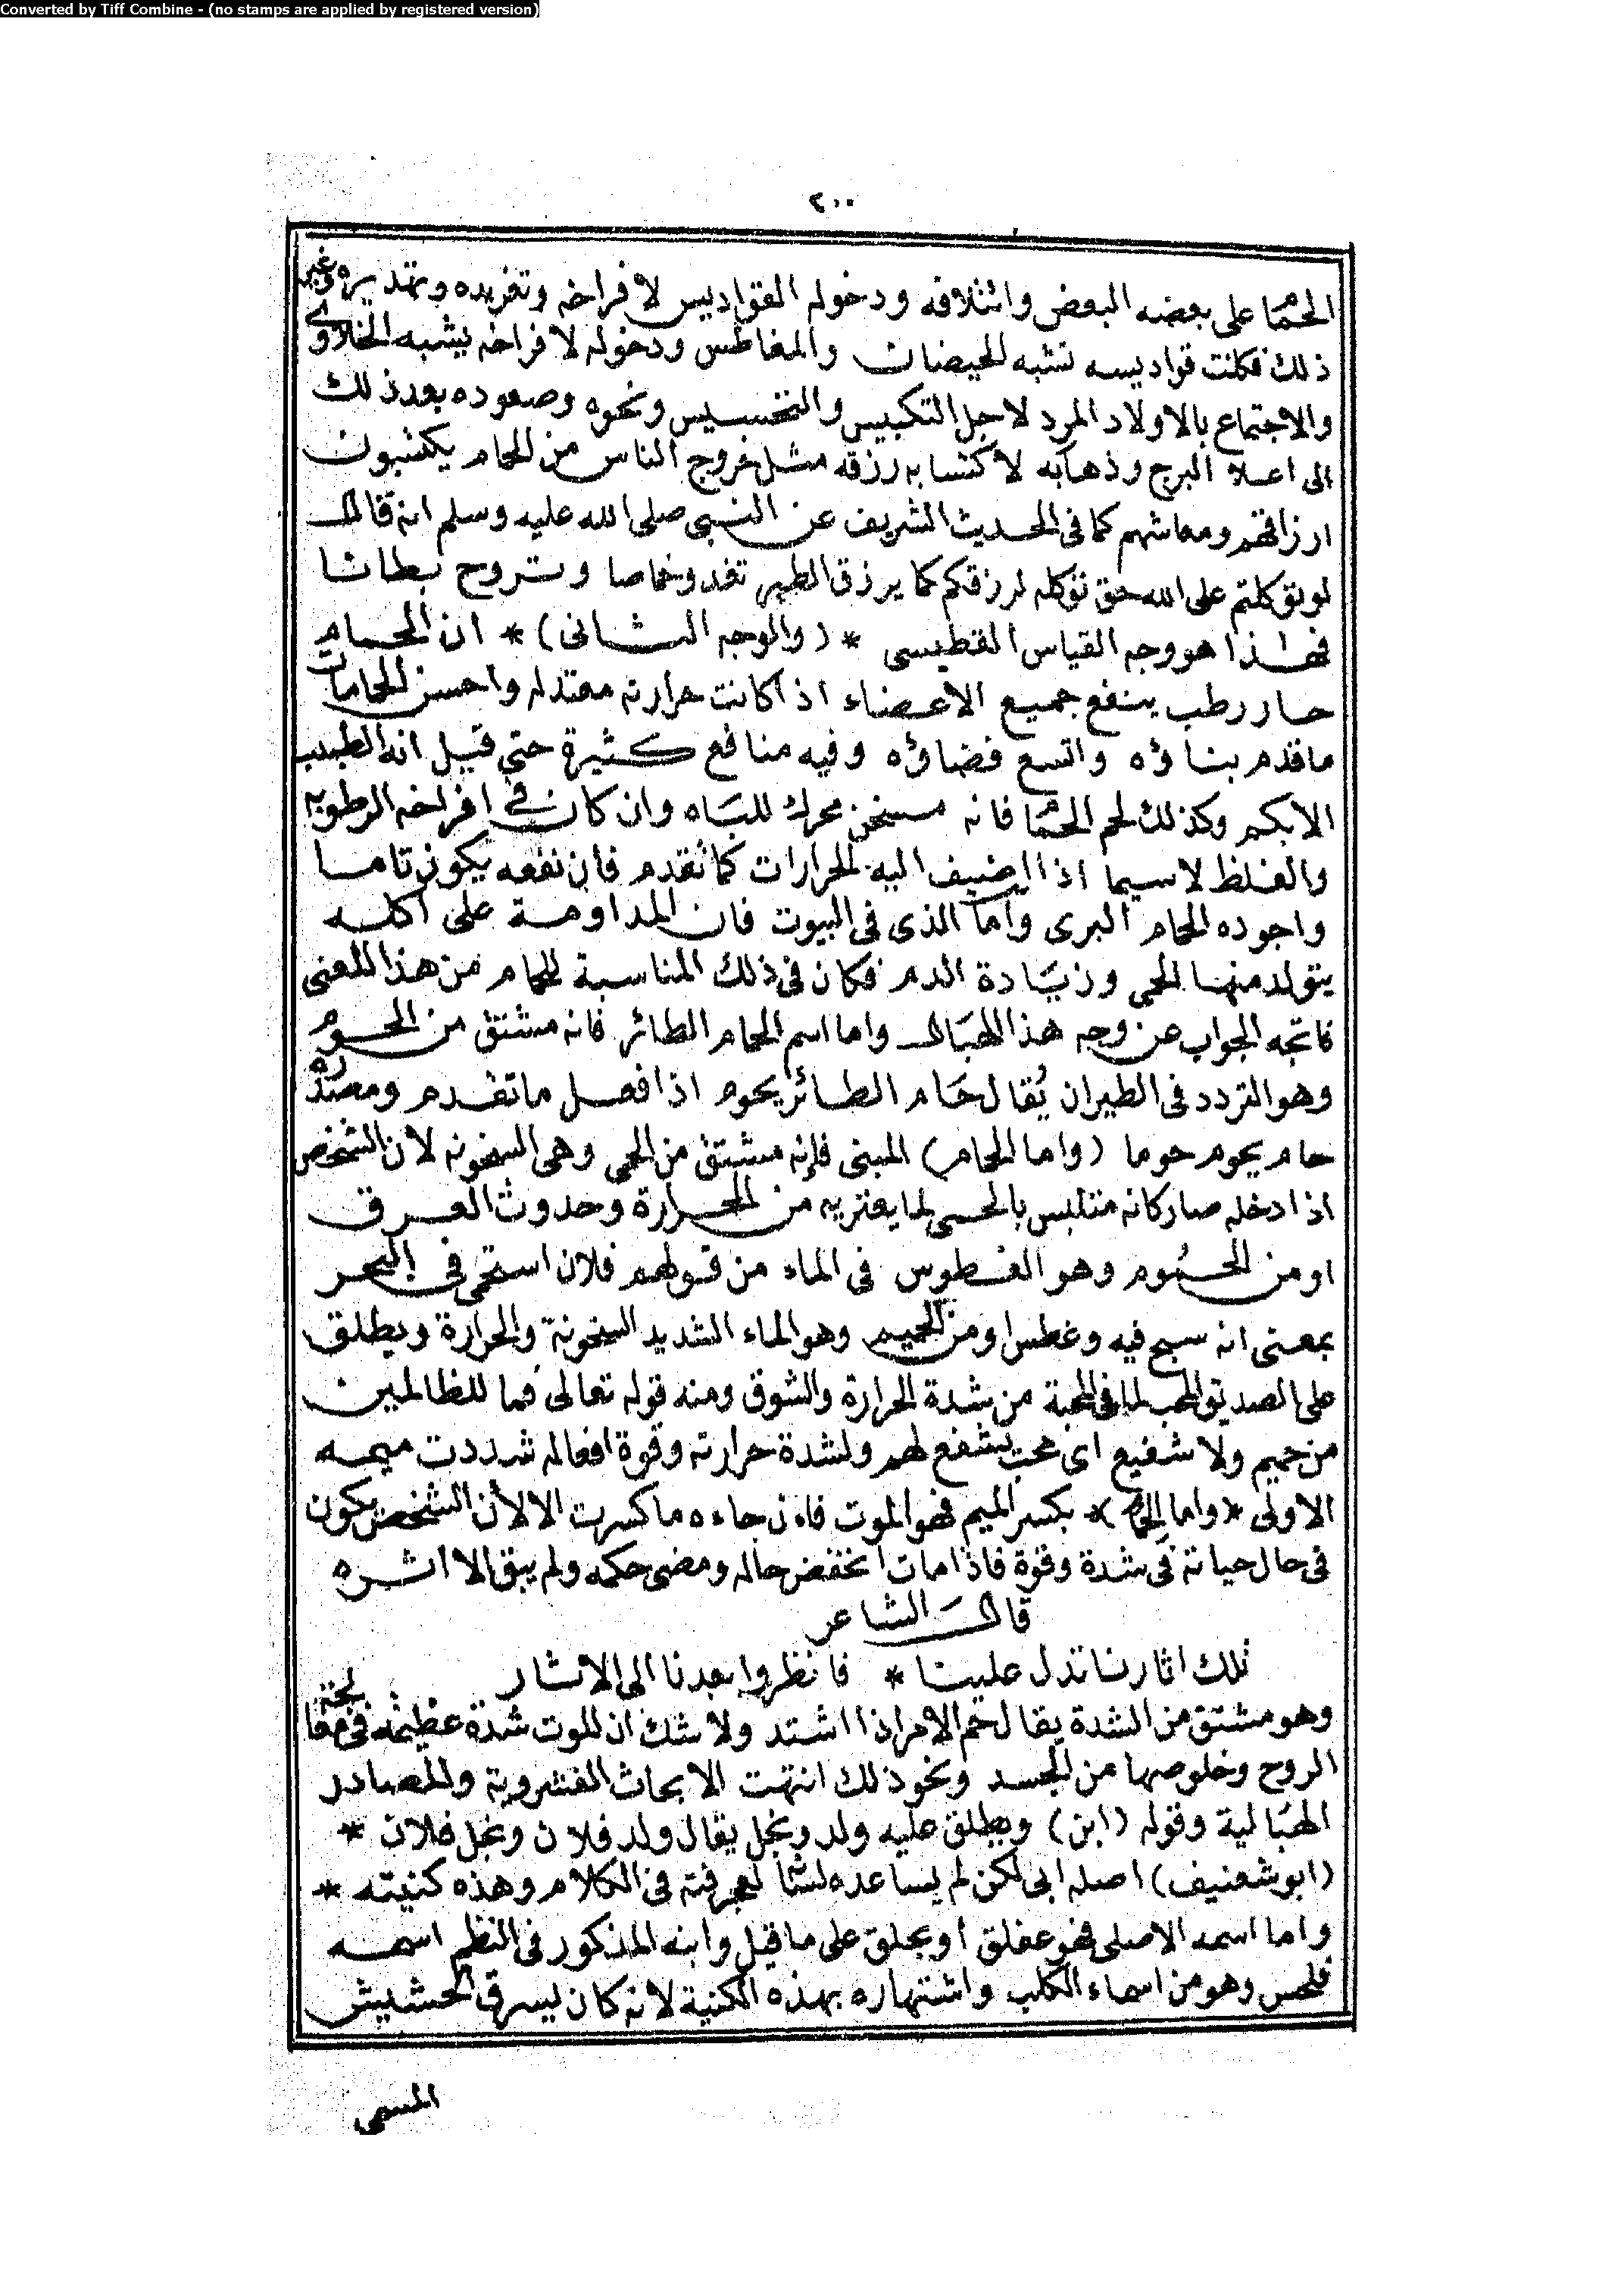 Converted by Tiff Combine - (no stamps are applied by registered version)
٢٠٠
الحمام على بعضه البعض وائتلافه ودخوله القواديس لافراخه وتغريده وتهديره وغير
ذلك فكانت قواديسه تشبه الحيضان والمغاطس ودخوله لافراخه يشبه الخلاوى
والاجتماع بالاولاد المرد لاجل التكبيس والتحسيس ونحوه وصعوده بعد ذلك
الى اعلا البرج وذهابه لاكتسابه رزقه مثل خروج الناس من الحمام يكتسبون
ارزاقهم ومعاشهم كما فى الحديث الشريف عن النبي صلى الله عليه وسلم انه قال
لو توكلتم على الله حق توكله لرزقكم كما يرزق الطير تغدو خماصا وتروح بطانا
فهذا هو وجه القياس الفطيسى * (والوجه الثانى) * ان الحمام
حار رطب ينفع جميع الاعضاء اذا كانت حرارته معتدله واحسن الحمامات
ما قدم بناؤه واتسع فضاؤه وفيه منافع كثيرة حتى قيل انه الطبيب
الابكم وكذلك لحم الحمام فانه مسخن محرك للباه وان كان فى افراخه الرطوبه
والغلظ لاسيما اذا اضيف اليه الحرارات كما تقدم فان نفعه يكون تاما
واجوده الحمام البرى واما الذى فى البيوت فان المداومة على اكله
يتولد منها الحمى وزيادة الدم فكان فى ذلك المناسبة للحمام من هذا المعنى
فاتجه الجواب عن وجه هذا الهبال واما اسم الحمام الطائر فانه مشتق من الحوم
وهو التردد فى الطيران يُقال حَام الطائر يحوم اذا فعل ما تقدم ومصدره
حام يحوم حوما (واما الحمام) المبنى فإنه مشتق من الحمى وهى السخونه لان الشخص
اذا دخله صار كانه متلبس بالحمى لما يعتريه من الحرارة وحدوث العرق
او من الحُموم وهو الغطوس فى الماء من قولهم فلان استحمى فى البحر
بمعنى انه سبح فيه وغطس او من الحميم وهو الماء الشديد السخونة والحرارة ويطلق
على الصديق المحب لما فى المحبة من شدة الحرارة والشوق ومنه قوله تعالى فما للظالمين
من حميم ولا شفيع اى محب يشفع لهم ولشدة حرارته وقوة افعاله شددت ميمه
الاولى * (واما الحمام) * بكسر الميم فهو الموت فاءن حاءه ما كسرت الا لأن الشخص يكون
فى حال حياته فى شدة وقوة فاذا مات انخفض حاله ومضى حكمه ولم يبق الا اثره
قال الشاعر
تلك اثارنا تدل علينا * فانظروا بعدنا الى الاثار
وهو مشتق من الشدة يقال حم الامر اذا اشتد ولا شك ان للموت شدة عظيمه فى معالجة
الروح وخلوصها من الجسد ونحو ذلك انتهت الابحاث الفشروية والمصادر
الهبالية وقوله (ابن) ويطلق عليه ولد ونجل يقال ولد فلان ونجل فلان *
(ابو شعنيف) اصله ابى لكن لم يساعده لسانه لعجرفته فى الكلام وهذه كنيته *
واما اسمه الاصلى فهو عفلق او عجلق على ما قيل وابنه المذكور فى النظم اسمه
فلحس وهو من اسماء الكلب واشتهاره بهذه الكنية لانه كان يسرق الحشيش
المسمى